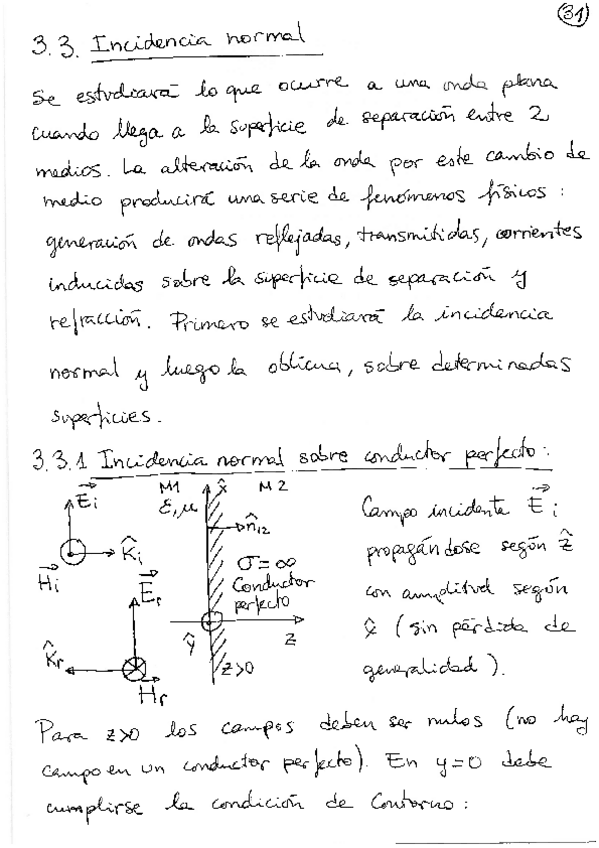 31
3.3. Incidencia normal
Se estudiará lo que ocurre a una onda plana
cuando llega a la superficie de separación entre 2
medios. La alteración de la onda por este cambio de
medio producirá una serie de fenómenos físicos :
generación de ondas reflejadas, transmitidas, corrientes
inducidas sobre la superficie de separación y
refracción. Primero se estudiará la incidencia
normal y luego la oblicua, sobre determinadas
superficies.
3.3.1 Incidencia normal sobre conductor perfecto:
E⃗i
K̂i
H⃗i
E⃗r
K̂r
H⃗r
M1
ε, μ
x̂
M2
n̂12
σ=∞
Conductor
perfecto
ŷ
z
z>0
Campo incidente E⃗i
propagándose según ẑ
con amplitud según
x̂ (sin pérdida de
generalidad).
Para z>0 los campos deben ser nulos (no hay
campo en un conductor perfecto). En y=0 debe
cumplirse la condición de Contorno :